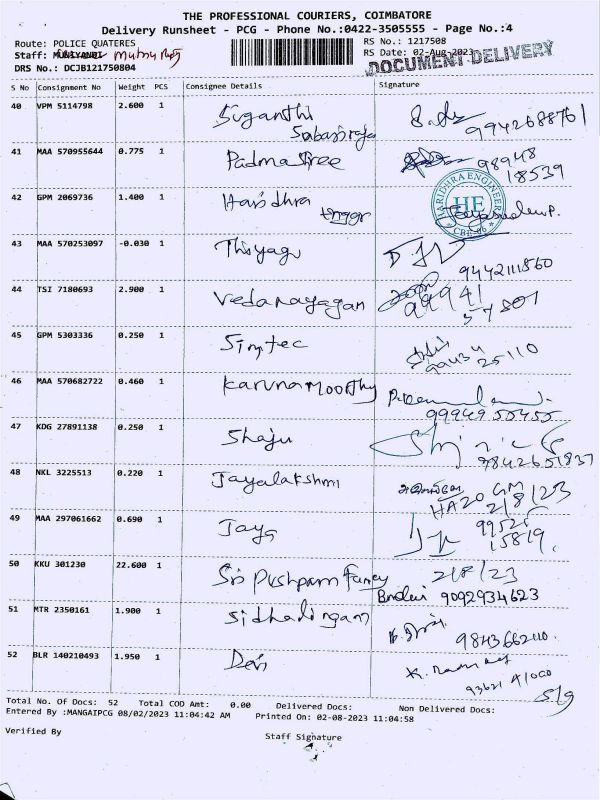 THE PROFESSIONAL COURIERS, COIMBATORE
Delivery Runsheet - PCG - Phone No.:0422-3505555 - Page No.:4
Route: POLICE QUATERES RS No.: 1217508
Staff: RS Date: 02-Aug-2023
DOCUMENT DELIVERY
DRS No.: DCJB121750804
S No Consignment No Weight PCS Consignee Details Signature
40 VPM 5114798 2.600 1 Suganthi 9942688761
41 MAA 570955644 0.775 1 Padma Shree 98948
18539
42 GPM 2069736 1.400 1 Haridhra
HARIDHRA ENGINEER
HE
CBE-06
43 MAA 570253097 -0.030 1 Thiyagu
9442111560
44 TSI 7180693 2.900 1 Vedanayagan 99941
57501
45 GPM 5303336 0.250 1 Simtec
25110
46 MAA 570682722 0.460 1 Karunamoorthy
9994955455
47 KDG 27891138 0.250 1 Shaju
9842651837
48 NKL 3225513 0.220 1 Jayalakshmi
2/8/23
49 MAA 297061662 0.690 1 Jaya
15819
50 KKU 301230 22.600 1 Sri Pushpam Fancy 2/8/23
9092934623
51 MTR 2350161 1.900 1 Sidhalingam
9843662110
52 BLR 140210493 1.950 1 Devi
Total No. Of Docs: 52 Total COD Amt: 0.00 Delivered Docs: Non Delivered Docs:
Entered By :MANGAIPCG 08/02/2023 11:04:42 AM Printed On: 02-08-2023 11:04:58
Verified By
Staff Signature